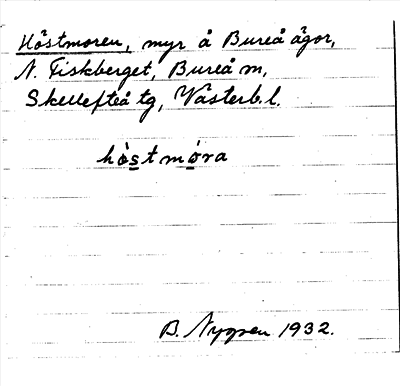 Höstmoren, myr å Bureå ägor,
N. Fiskberget, Bureå m,
Skellefteå tg, Västerb. l.
hȯstmȯra
B. Nygren 1932.